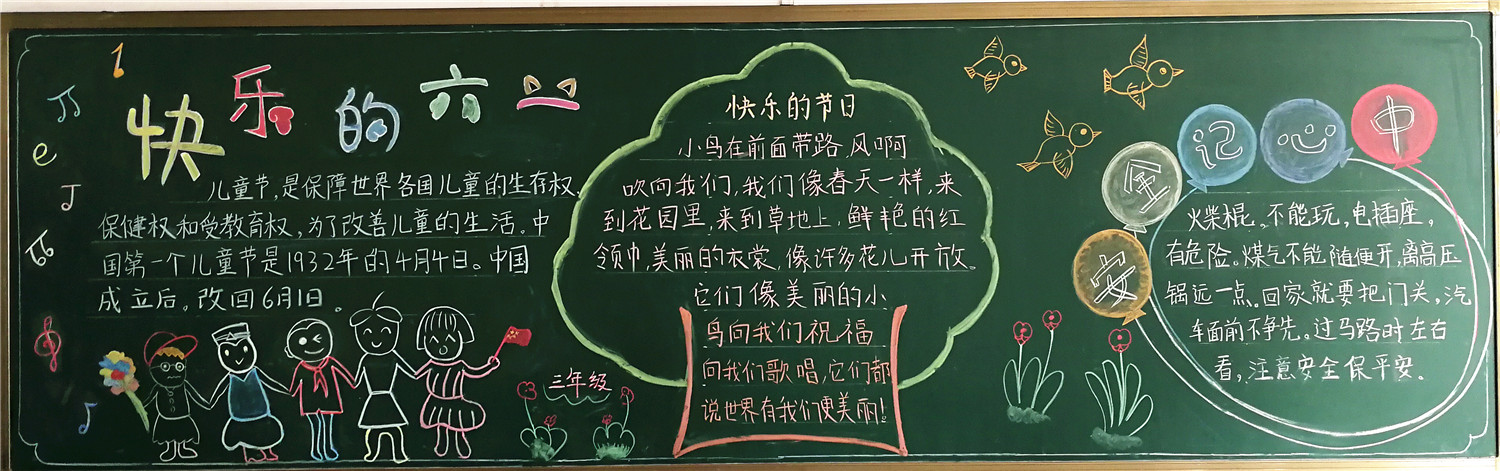 快乐的六一
儿童节,是保障世界各国儿童的生存权、
保健权和受教育权,为了改善儿童的生活。中
国第一个儿童节是1932年的4月4日。中国
成立后。改回6月1日。
三年级
快乐的节日
小鸟在前面带路、风啊
吹向我们,我们像春天一样,来
到花园里,来到草地上,鲜艳的红
领巾,美丽的衣裳,像许多花儿开放。
它们像美丽的小
鸟向我们祝福
向我们歌唱,它们都
说世界有我们更美丽!
安全记心中
火柴棍。不能玩,电插座。
有危险。煤气不能随便开,离高压
锅远一点。回家就要把门关,汽
车面前不争先。过马路时左右
看,注意安全保平安。